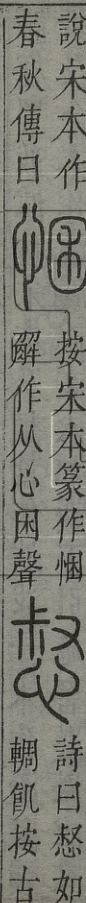 說宋本作
春秋傳曰
按宋本篆作悃
解作从心困聲
惄
詩曰惄如
輖飢按古